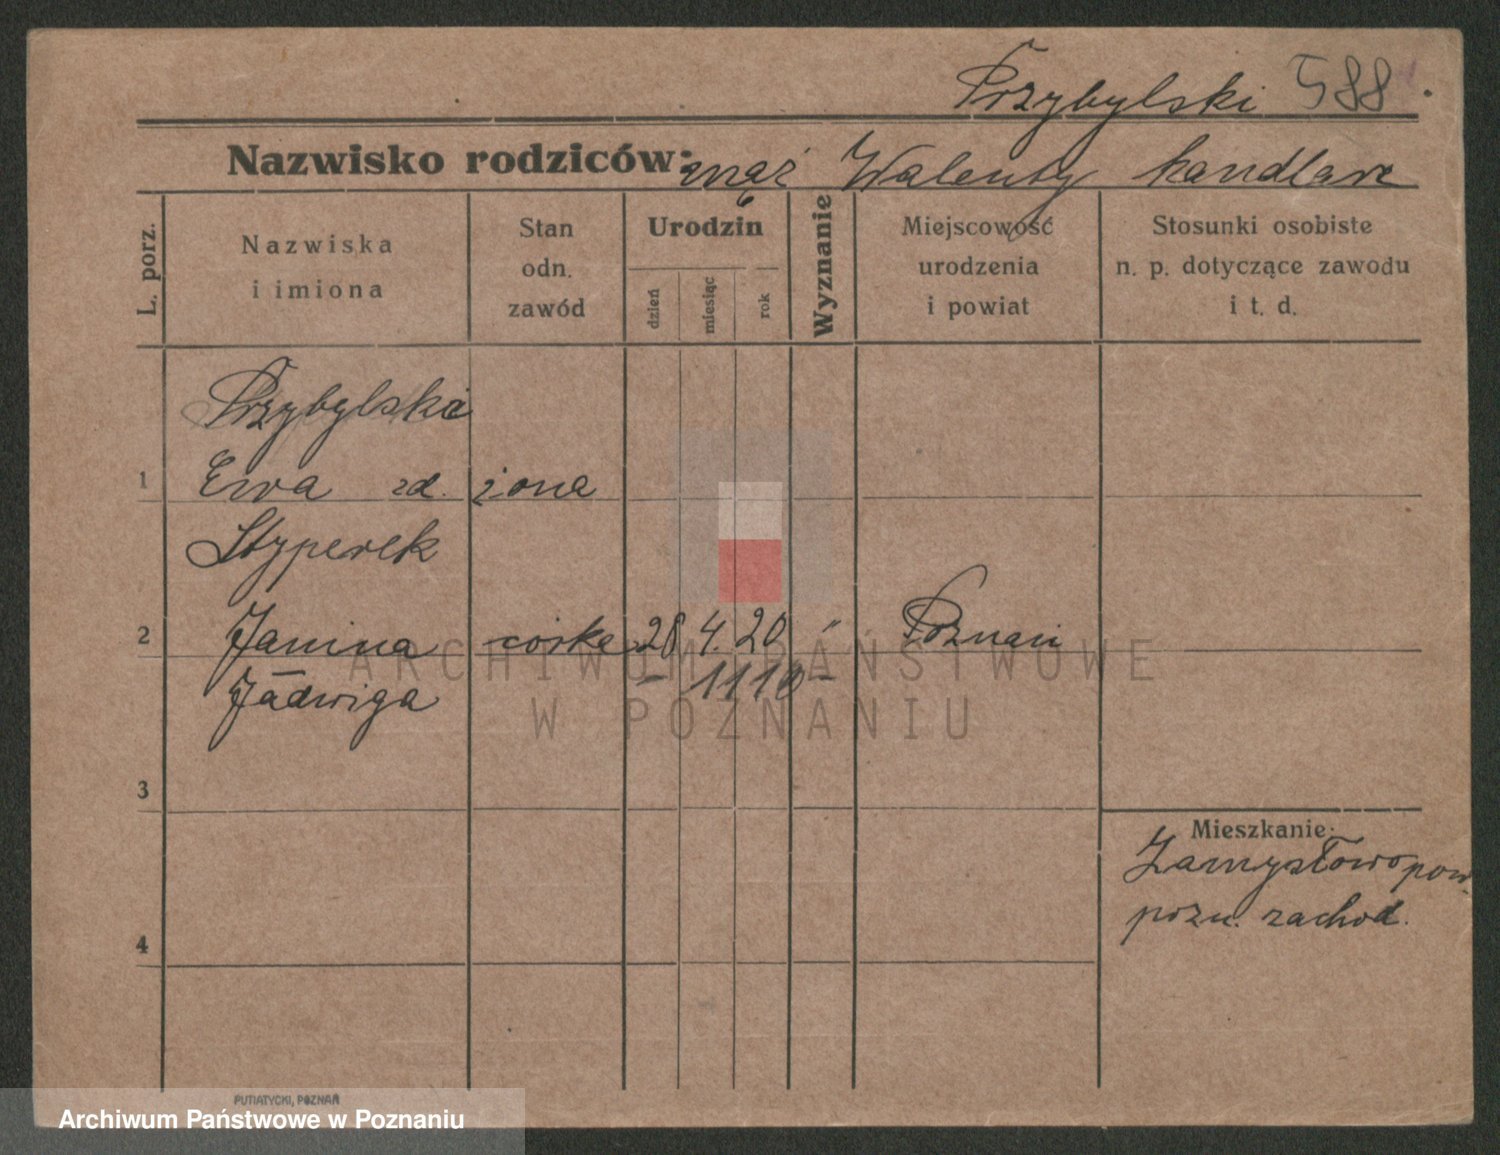 Przybylski 588.
Nazwisko rodziców: mąż Walenty handlarz
L. porz.
Nazwiska
i imiona
Stan
odn.
zawód
Urodzin
dzień
miesiąc
rok
Wyznanie
Miejscowość
urodzenia
i powiat
Stosunki osobiste
n. p. dotyczące zawodu
i t. d.
Przybylska
1 Ewa zd. żona
Styperek
2 Janina córka 28 4. 20 " Poznań
Jadwiga - 11 10 -
3
Mieszkanie:
Zamysłowo pow.
pozn. zachod.
4
PUTIATYCKI, POZNAŃ
ARCHIWUM PAŃSTWOWE
W POZNANIU
Archiwum Państwowe w Poznaniu